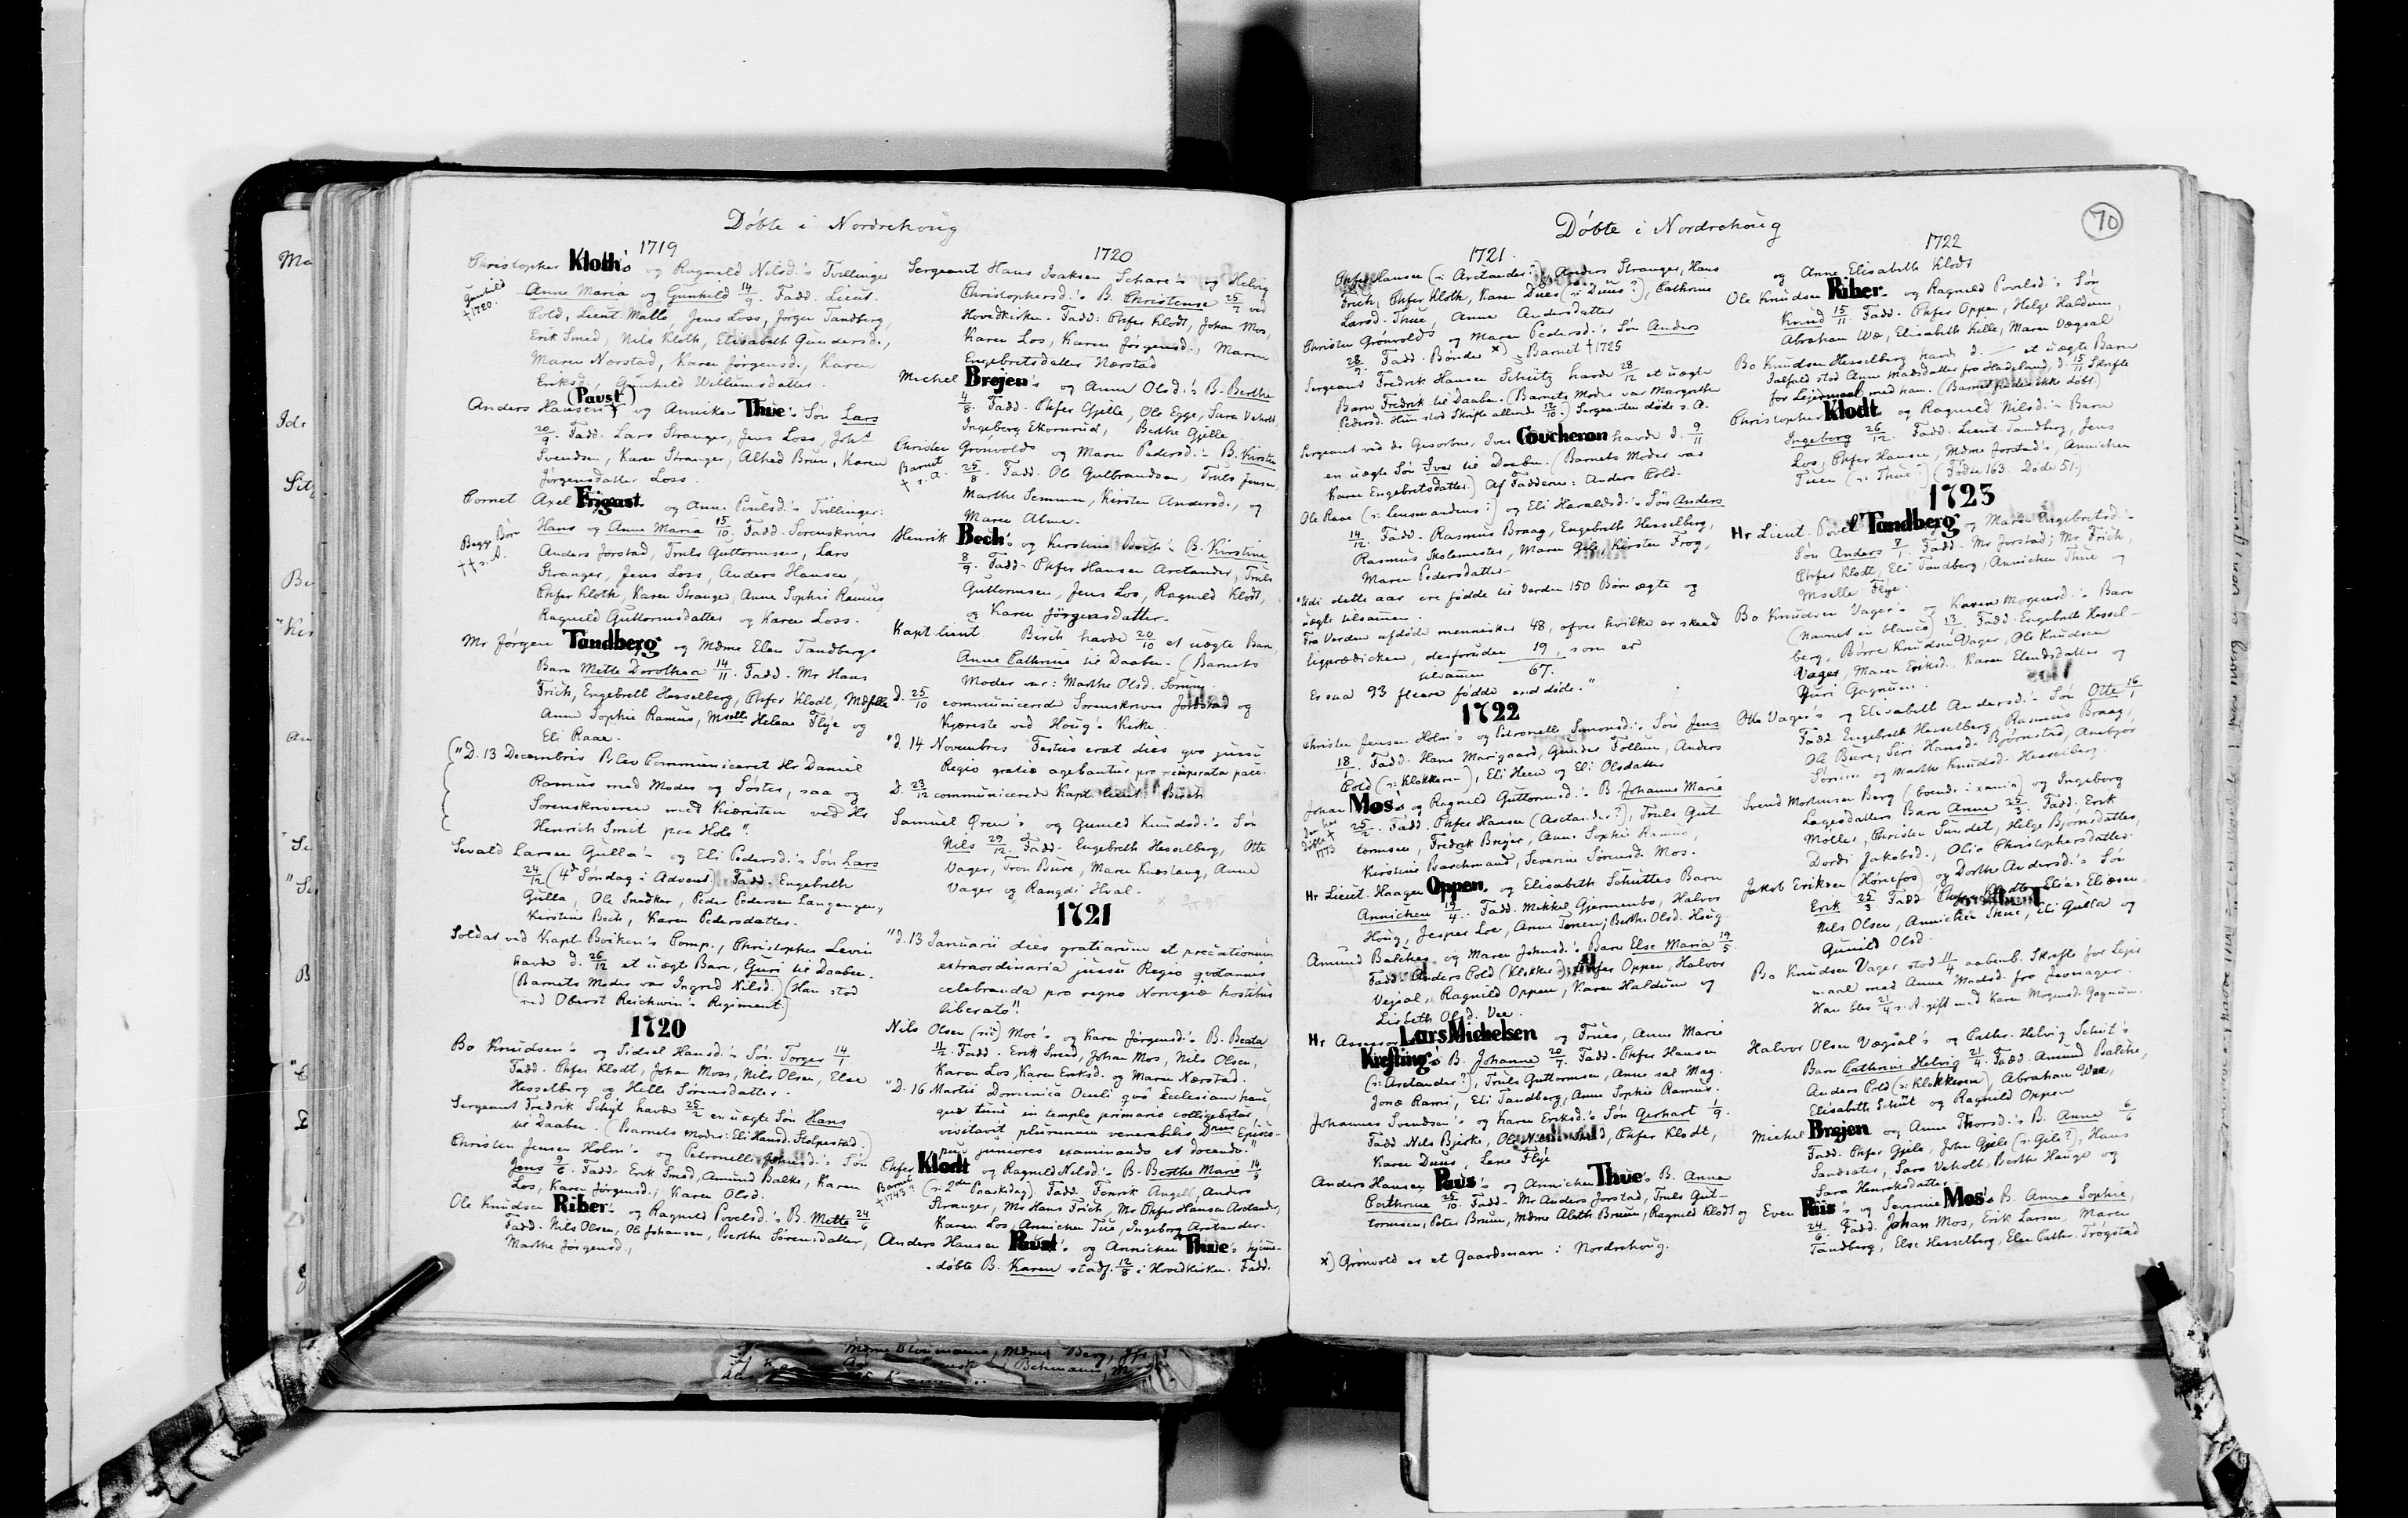 Døbte i Nordrehoug
1719
Christopher Kloth's og Ragnild Nilsd.'s Tvillinger
Gunhild † 1720.
Anne Maria og Gunhild 14/9. Fadd. Lieut.
Cold, Lieut. Malle, Jens Loss, Jørgen Tandberg,
Erik Smed, Nils Kloth, Elisabeth Gundersd.,
Maren Norstad, Karen Jørgensd., Karen
Eriksd., Gunhild Willumsdatter.
(Paust)
Anders Hansen's og Anniken Thue's Søn Lars
20/9. Fadd. Lars Stranger, Jens Loss, Joh.
Svendsen, Karen Stranger, Alhed Brun, Karen
Jørgensdatter Loss.
Cornet Axel Frigast og Anne Poulsd.'s Tvillinger:
Begge Børn †† s. A.
Hans og Anne Maria 15/10. Fadd. Sorenskriver
Anders Jorstad, Truls Guttormsen, Lars
Stranger, Jens Loss, Anders Hansen,
Chfer Kloth, Karen Stranger, Anne Sophie Ramus,
Ragnild Guttormsdatter og Karen Loss.
Mr Jørgen Tandberg og Mdme Elen Tandbergs
Barn Mette Dorothea 14/11. Fadd. Mr Hans
Frich, Engebrett Hesselberg, Chfer Klodt, Mdselle
Anne Sophie Ramus, Mselle Helene Flye og
Eli Raae.
("D. 13 Decembris Blev Communiceret Hr Daniel
Ramus med Moder og Søster, saa og
Sorenskriveren med Kiæresten ved Hr
Henrich Smit paa Hole".
Sevald Larsen Gulla's og Eli Pedersd.'s Søn Lars
24/12 (4de Søndag i Advent) Fadd. Engebreth
Gulla, Ole Snedker, Peder Pedersen Langengen,
Kirstine Bech, Karen Pedersdatter.
Soldat ved Kapt. Boiken's Comp., Christopher Levin
havde d. 26/12 et uægte Barn, Guri til Daaben.
(Barnets Moder var Ingred Nilsd.) (Han stod
ved Oberst Reichwin's Regiment.)
1720
Bo Knudsen's og Sidsel Hansd.'s Søn Torger 14/1
Fadd. Chfer Klodt, Johan Moss, Nils Olsen, Else
Hesselberg og Helle Sørensdatter.
Sergeant Fredrik Schyt havde 25/2 en uægte Søn Hans
til Daaben. (Barnets Moder: Eli Hansd. Stolpestad.)
Christen Jensen Holm's og Petronelle Johnsd.'s Søn
Jens 9/6. Fadd. Erik Smed, Amund Balke, Karen
Los, Karen Jørgensd., Karen Olsd.
Ole Knudsen Riber's og Ragnild Povelsd.'s B. Mette 24/6
Fadd. Nils Olsen, Ole Johansen, Berthe Sørensdatter,
Marthe Jørgensd.,
1720
Sergeant Hans Isaksen Schare's og Helvig
Christophersd.'s B. Christense 25/7 ved
Hovedkirken. Fadd: Chfer Klodt, Johan Mos,
Karen Los, Karen Jørgensd., Maren
Engebretsdatter Nærstad
Michel Brøjen's og Anne Olsd.'s B. Berthe
4/8. Fadd. Chfer Gjelle, Ole Egge, Sara Veholt,
Ingeborg Ekornrud, Berthe Gjelle
Christen Grønvolds og Maren Pedersd.'s B. Kirsten
Barnet † s. A.
25/8. Fadd. Ole Gulbrandsen, Truls Jensen,
Marthe Semmen, Kirsten Andersd., og
Maren Alme.
Henrik Bech's og Kirstine Bech's B. Kirstine
8/9. Fadd. Chfer Hansen Arctander, Truls
Guttormsen, Jens Los, Ragnild Klodt,
og Karen Jörgensdatter.
Kapt. lieut. Bisch havde 20/10 et uægte Barn,
Anne Cathrine til Daaben. (Barnets
Moder var: Marthe Olsd. Sørum
d. 25/10 communicerede Sorenskriver Jorstad og
Kjæreste ved Houg's Kirke.
"d. 14 Novembris Festus erat dies qvo jussu
Regio gratiæ agebantur pro reimperata pace.
d. 23/12 communicerede Kapt. lieut. Bisch
Samuel Øren's og Gunild Knudsd.'s Søn
Nils 29/12. Fadd. Engebreth Hesselberg, Otte
Vager, Tron Bure, Maren Knestang, Anne
Vager og Rangdi Hval.
1721
"d. 13 Januarii dies gratiarum et precationum
extraordinaria jussu Regio qvotannis
celebranda pro regno Norvegiæ hostibus
liberato"
Nils Olsen (sic) Moe's og Karen Jørgensd.'s B. Beata
11/2. Fadd. Erik Smed, Johan Mos, Nils Olsen,
Karen Los, Karen Eriksd. og Maren Nærstad.
"D. 16 Martii Dominica Oculi qvo Ecclesiam hanc,
quæ tunc in templo primario colligebatur,
visitavit plurimum venerabilis Dnus Episco-
pus juniores examinando et docendo."
Chfer Klodt og Ragnild Nilsd.'s B. Berthe Marie 14/4
Barnet † 1743?
(ɔ: 2den Paaskedag) Fadd. Fenrik Angell, Anders
Stranger, Mr Hans Frich, Mr Chfer Hansen Arctander,
Karen Los, Annichen Tue, Ingeborg Arctander.
Anders Hansen Paust's og Annichen Thue's hjeme-
døbte B. Karen stadf. 12/8 i Hovedkirken. Fadd.
Døbte i Nordrehoug
70
1721.
Chfer Hansen (ɔ: Arctander?), Anders Stranger, Hans
Frich, Chfer Kloth, Karen Dues (ɔ: Duus?), Cathrine
Larsd. Thue, Anne Andersdatter
Christen Grønvolds og Maren Pedersd.'s Søn Anders
28/9. Fadd. Bønder x) Barnet † 1725
Sergeant Fredrik Hansen Schütz havde 28/12 et uægte
Barn Fredrik til Daaben. (Barnets Moder var Margrethe
Pedersd. Hun stod Skrifte allerede 12/10.) Sergeanten døde s. A.
Sergeant ved de Gevorbne, Iver Coucheron havde d. 9/11
en uægte Søn Iver til Daaben. (Barnets Moder var
Karen Engebretsdatter.) Af Fadderne: Anders Cold.
Ole Raae (ɔ: Lensmandens?) og Eli Haraldsd.'s Søn Anders
14/12. Fadd. Rasmus Braag, Engebreth Hesselberg,
Rasmus Skolemester, Maren Gile, Kirsten Frog,
Maren Pedersdatter
"Udi dette aar ere fødde til Verden 150 Børn ægte og
uægte tilsamen.
Fra Verden afdøde mennesker 48, ofver hvilke er skeed
ligprædicken, desforuden 19, som er
tilsamen 67.
Er saa 93 fleere fødde end døde."
1722
Christen Jensen Holm's og Petronelle Simonsd.'s Søn Jens
18/1. Fadd. Hans Marigaard, Gunder Follum, Anders
Cold (ɔ: Klokkeren), Eli Heen og Eli Olsdatter
Johan Mos's og Ragnild Guttormsd.'s B. Johanne Marie
25/2. Fadd. Chfer Hansen (Arctander?), Truls Gut
tormsen, Fredrik Brejer, Anne Sophie Ramus,
Kirstine Baschmand, Severine Sörensd. Mos.
Hr Lieut. Haagen Oppen's og Elisabeth Schuttes Barn
Annichen 19/4. Fadd. Mikkel Gjermenbo, Halvor
Houg, Jesper Loe, Anne Tanem, Berthe Olsd. Houg
Amund Balches og Maren Johnsd.'s Barn Else Maria 19/5.
Fadd. Anders Cold (Klokker), Chfer Oppen, Halvor
Vegsal, Ragnild Oppen, Karen Haldum og
Lisbeth Olsd. Vee.
Hr Assessor Lars Michelsen
Krefting's og Frues, Anne Marie
B. Johanne 20/7. Fadd. Chfer Hansen
(ɔ: Arctander?), Truls Guttormsen, Anne sal Mag.
Jonæ Rami, Eli Tandberg, Anne Sophie Ramus.
Johannes Svendsen's og Karen Eriksd.'s Søn Gerhart 1/9.
Fadd. Nils Bjerke, Ole, Chfer Klodt,
Karen Duus, Lene Flyé
Anders Hansen Paus's og Annichen Thue's B. Anne
Cathrine 25/10. Fadd. Mr Anders Jorstad, Truls Gut-
tormsen, Peter Bruun, Mdme Aleth Bruun, Ragnild Klodt og
x) Grønvold er et Gaardsnavn i Nordrehoug.
1722
og Anne Elisabeth Klodt
Ole Knudsen Riber's og Ragnild Povelsd.'s Søn
Knud 15/11. Fadd. Chfer Oppen, Helge Haldum,
Abraham We, Elisabeth Kille, Maren Vegsal
Bo Knudsen Hesselberg havde d. — et uægte Barn
Ialfald stod Anne Madsdatter fra Hadeland, d. 15/11 Skrifte
for Lejermaal med ham. (Barnet findes ikke døbt.)
Christopher Klodt og Ragnild Nilsd.'s Barn
Ingeborg 26/12. Fadd. Lieut. Tandberg, Jens
Los, Chfer Hansen, Mdme Jorstad's, Annichen
Tuen (ɔ: Thue?) (Fødte 163. Døde 51.)
1723
Hr Lieut. Povel Tandberg og Maren Engebretsd.'s
Søn Anders 7/1. Fadd. Mr Jorstad, Mr Frich,
Chfer Klodt, Eli Tandberg, Annichen Thue og
Mselle Flye.
Bo Knudsen Vager's og Karen Mogensd.'s Barn
(navnet in blanco) 13/. Fadd. Engebreth Hessel-
berg, Børre Knudsen Vager, Ole Knudsen
Vager, Maren Eriksd., Karen Elendsdatter og
Guri Gagnum.
Otte Vager's og Elisabeth Andersd.'s Søn Otte 16/1
Fadd. Engebreth Hesselberg, Rasmus Braag,
Ole Bure, Siri Hansd. Bjørnstad, Anebjør
Sörum og Marthe Knudsd. Hesselberg.
Svend Mortensen Berg (boende i xania) og Ingeborg
Lagesdatters Barn Anne 25/3. Fadd. Erik
Møller, Christen Sundet, Helge Bjørnsdatter,
Dordi Jakobsd., Olia Christophersdatter.
Jakob Eriksen (Hønefos) og Dorthe Andersd.'s Søn
Erik 25/3. Fadd. Chfer Klodt, Elias Eliæsen
Nils Olsen, Annichen Thue, Eli Gulla og
Gunild Olsd.
Bo Knudsen Vager stod 11/4 aabenb. Skrifte for Lejer
maal med Anne Madsd. fra Jevnager.
Han blev 21/4 s. A. gift med Karen Mogensd. Gagnum.
Halvor Olsen Vægsal's og Cathr. Helvig Schut's
Barn Cathrine Helvig 21/4. Fadd. Amund Balche,
Anders Cold (ɔ: Klokkeren), Abraham Wee,
Elisabeth Schüt og Ragnild Oppen
Michel Brøjen og Anne Thorsd.'s B. Anne 6/6
Fadd. Chfer Gjele, John Gjele (ɔ: Gile?), Hans
Sandsater, Sara Veholt, Berthe Hauge og
Sara Henriksdatter
Even Piis's og Severine Mos's B. Anna Sophie,
24/6. Fadd. Johan Mos, Erik Larsen, Maren
Tandberg, Else Hesselberg, Elen Cathr. Trøgstad